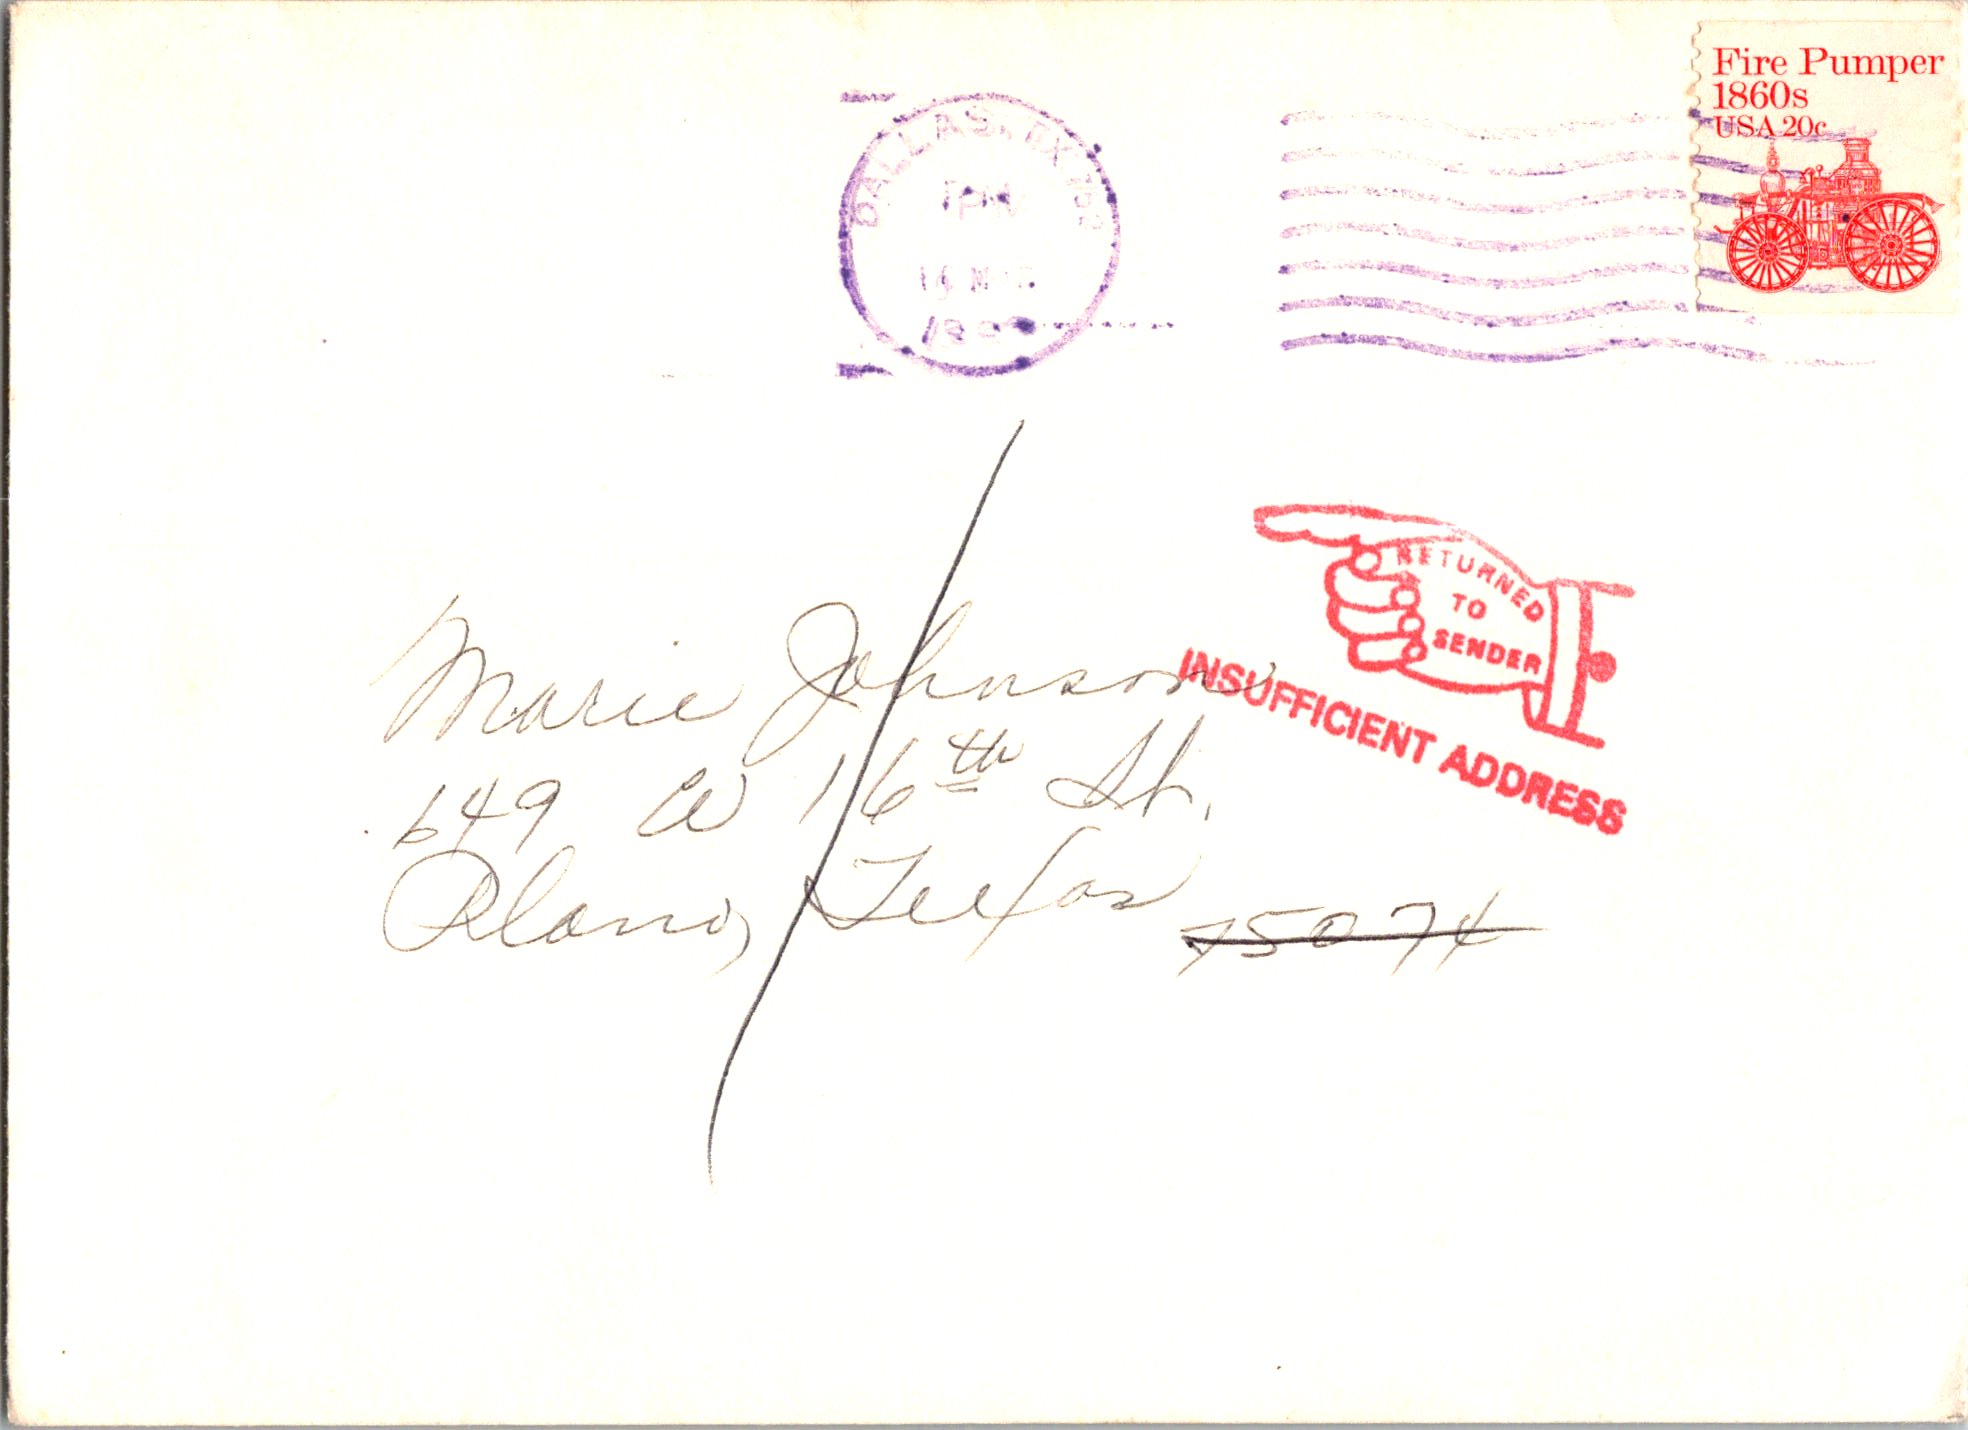 Fire Pumper
1860s
USA 20c
DALLAS, TX
PM
RETURNED
TO
SENDER
INSUFFICIENT ADDRESS
Marie Johnson
649 W 16th St.
Plano, Texas 75074